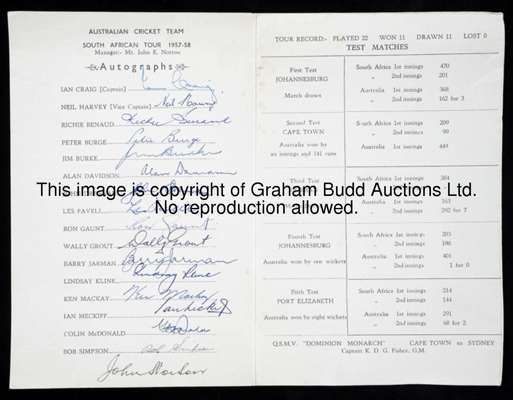 AUSTRALIAN CRICKET TEAM
SOUTH AFRICAN TOUR 1957-58
Manager:- Mr. John E. Norton
Autographs
IAN CRAIG [Captain] Ian Craig
NEIL HARVEY [Vice Captain]
RICHIE BENAUD Richie Benaud
PETER BURGE Peter Burge
JIM BURKE Jim Burke
ALAN DAVIDSON Alan Davidson
LES FAVELL
RON GAUNT Ron Gaunt
WALLY GROUT Wally Grout
BARRY JARMAN Barry Jarman
LINDSAY KLINE Lindsay Kline
KEN MACKAY Ken Mackay
IAN MECKIFF Ian Meckiff
COLIN McDONALD
BOB SIMPSON Bob Simpson
John Norton
TOUR RECORD:- PLAYED 22 WON 11 DRAWN 11 LOST 0
TEST MATCHES
First Test
JOHANNESBURG
Match drawn
South Africa 1st innings 470
„ 2nd innings 201
Australia 1st innings 368
„ 2nd innings 162 for 3
Second Test
CAPE TOWN
Australia won by
an innings and 141 runs
South Africa 1st innings 209
„ 2nd innings 99
Australia 1st innings 449
Third
South Africa 1st innings 384
Australia 163
292 for 7
Fourth Test
JOHANNESBURG
Australia won by ten wickets
South Africa 1st innings 203
„ 2nd innings 198
Australia 1st innings 401
„ 2nd innings 1 for 0
Fifth Test
PORT ELIZABETH
Australia won by eight wickets
South Africa 1st innings 214
„ 2nd innings 144
Australia 1st innings 291
„ 2nd innings 68 for 2
Q.S.M.V. "DOMINION MONARCH" CAPE TOWN to SYDNEY
Captain K. D. G. Fisher, G.M.
This image is copyright of Graham Budd Auctions Ltd.
No reproduction allowed.